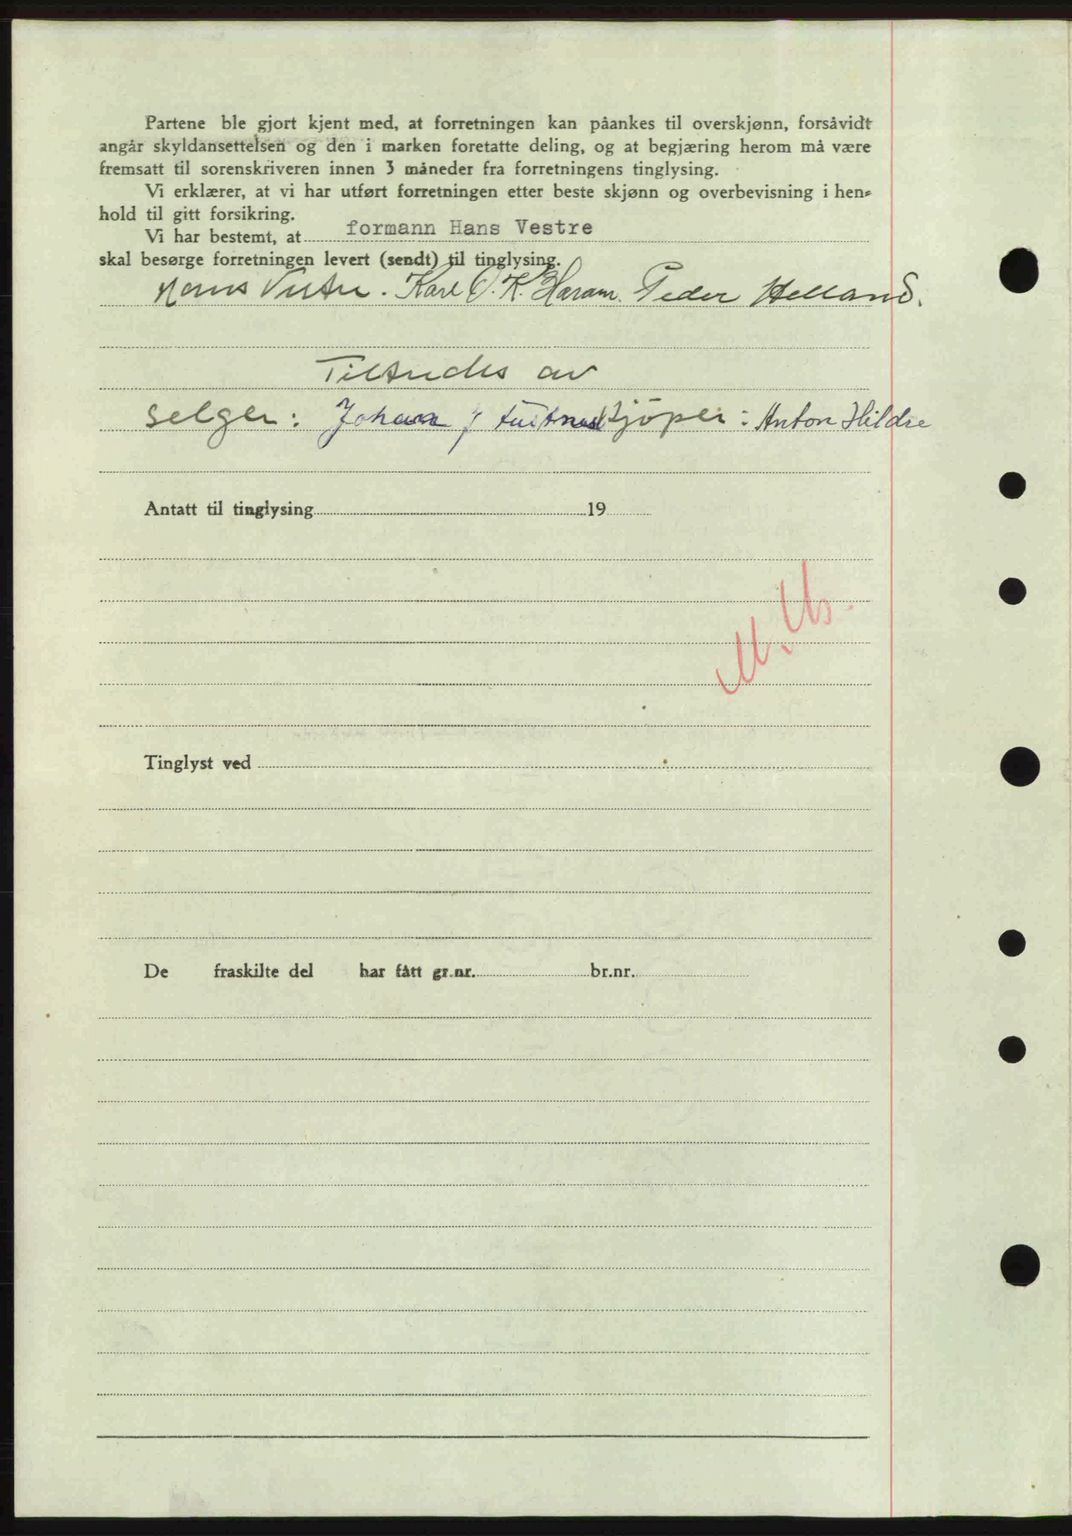 Partene ble gjort kjent med, at forretningen kan påankes til overskjønn, forsåvidt
angår skyldansettelsen og den i marken foretatte deling, og at begjæring herom må være
fremsatt til sorenskriveren innen 3 måneder fra forretningens tinglysing.
Vi erklærer, at vi har utført forretningen etter beste skjønn og overbevisning i hen-
hold til gitt forsikring.
Vi har bestemt, at formann Hans Vestre
skal besørge forretningen levert (sendt) til tinglysing.
Hans Vestre. Karl O. K. Haram. Peder Helland.
Tiltredes av
selger: Johan J kjöper: Anton Hildre
Antatt til tinglysing 19
Tinglyst ved
De fraskilte del har fått gr.nr. br.nr.